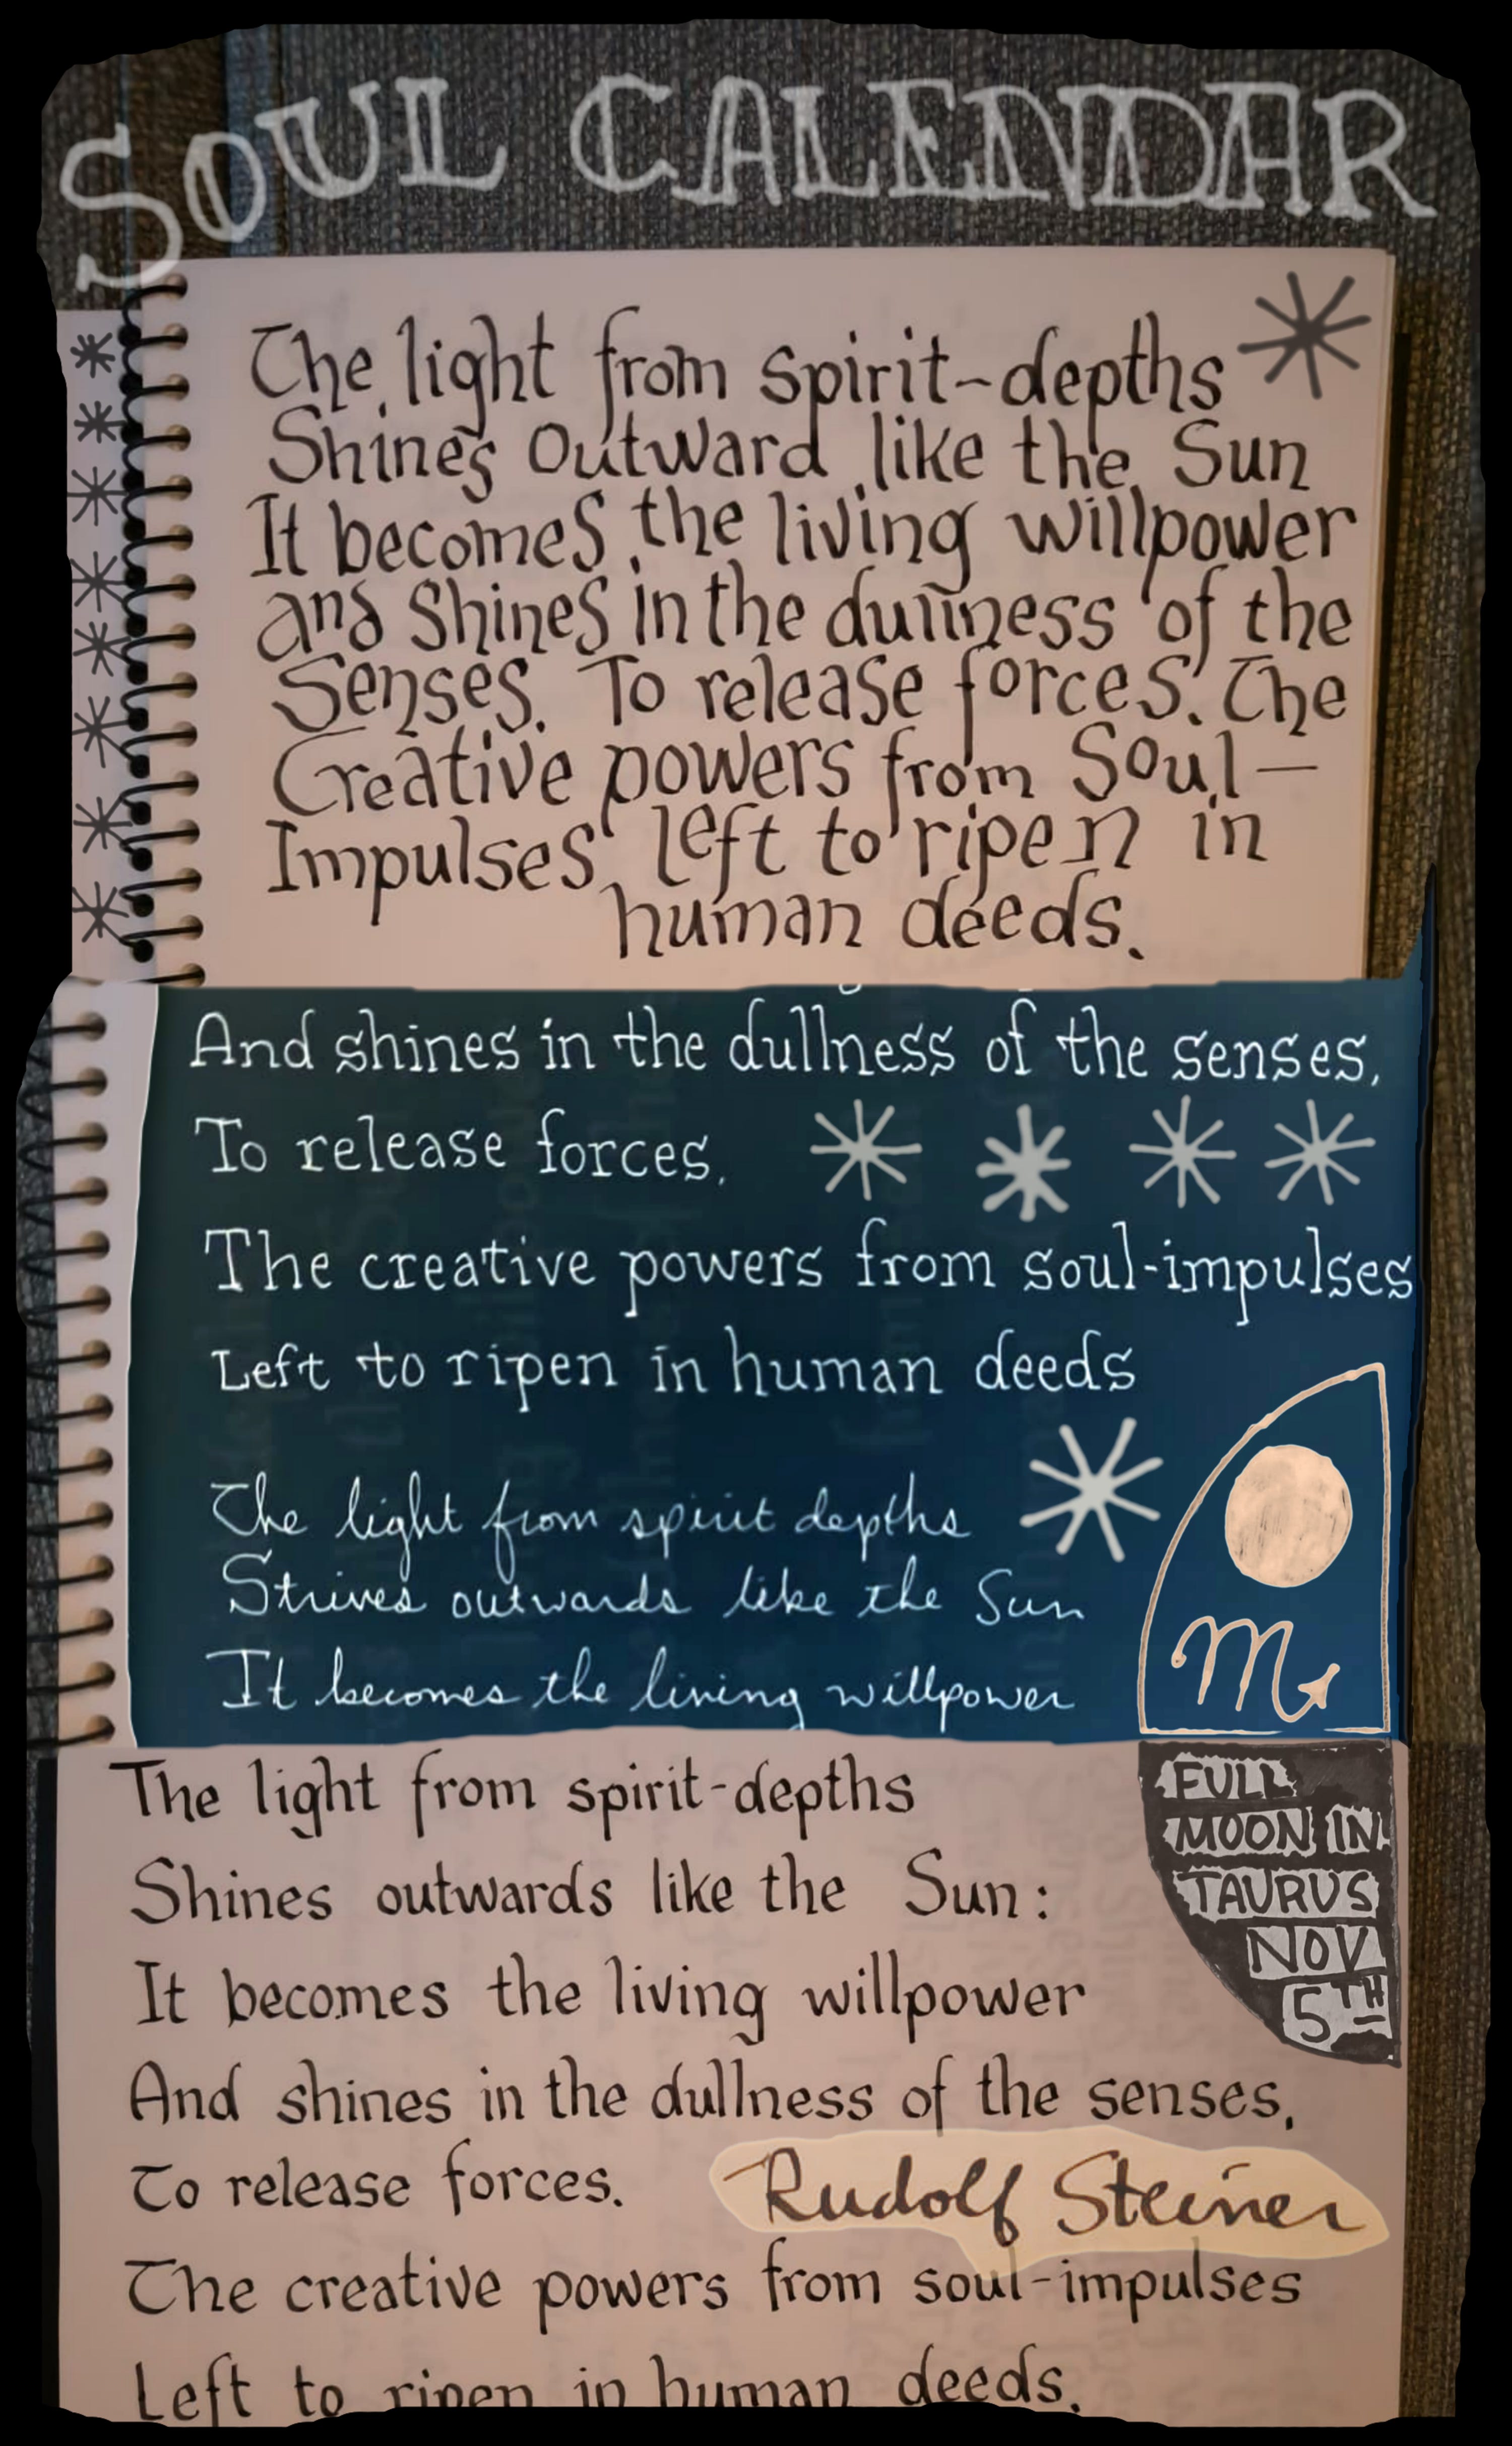 SOUL CALENDAR
The light from spirit-depths
Shines outward like the Sun
It becomes the living willpower
and shines in the dullness of the
Senses. To release forces. The
Creative powers from Soul-
Impulses left to ripen in
human deeds.
And shines in the dullness of the senses,
To release forces,
The creative powers from soul-impulses
Left to ripen in human deeds
The light from spirit depths
Strives outwards like the Sun
It becomes the living willpower
The light from spirit-depths
Shines outwards like the Sun:
It becomes the living willpower
And shines in the dullness of the senses,
To release forces.
The creative powers from soul-impulses
Left to ripen in human deeds.
Rudolf Steiner
♏
FULL
MOON IN
TAURUS
NOV
5TH